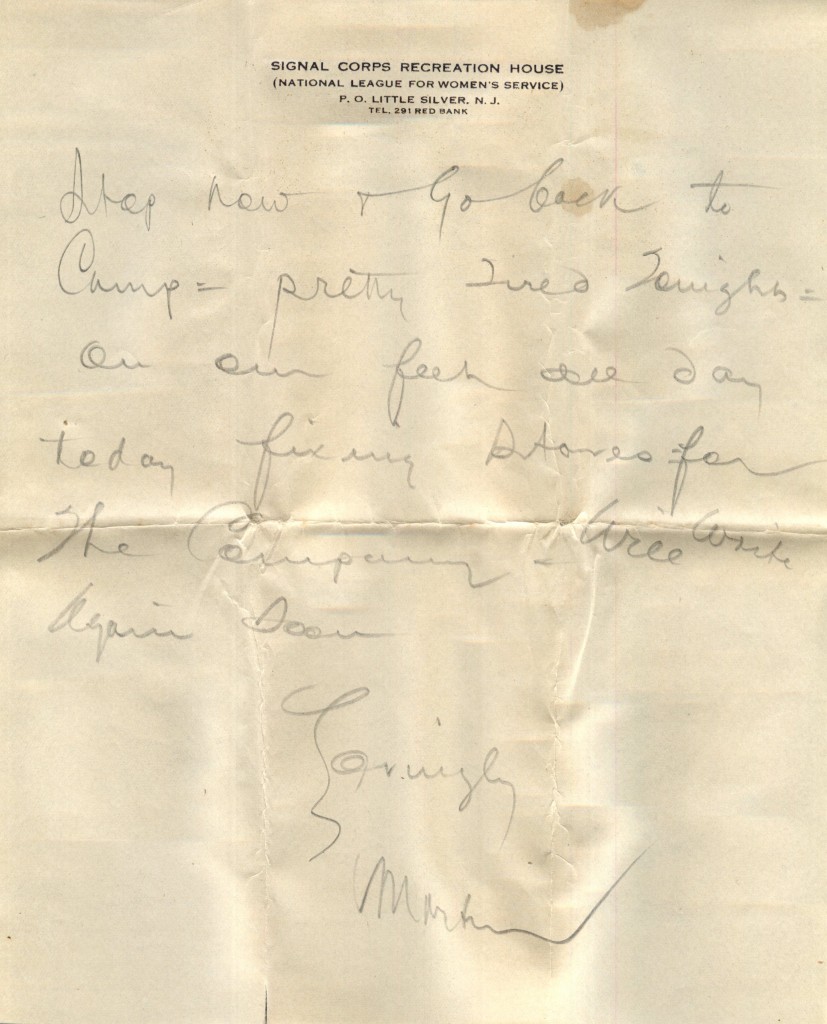 SIGNAL CORPS RECREATION HOUSE
(NATIONAL LEAGUE FOR WOMEN'S SERVICE)
P. O. LITTLE SILVER, N. J.
TEL. 291 RED BANK
Stop now & Go back to
Camp = pretty Tired Tonight =
On our feet all day
today fixing stoves for
The Company - Will Write
Again Soon
Lovingly
Martin